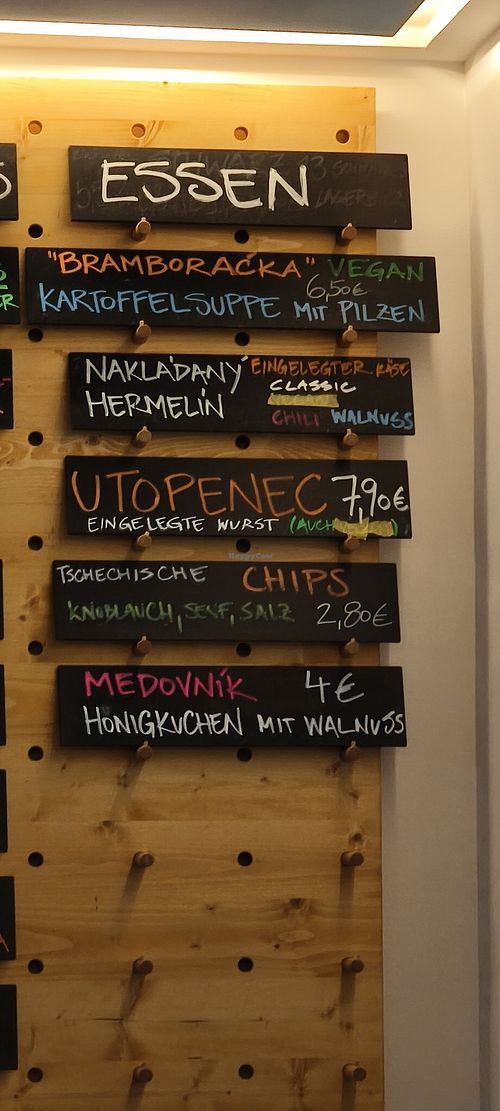 ESSEN
"BRAMBORAČKA" VEGAN
6,50€
KARTOFFELSUPPE MIT PILZEN
NAKLÁDANÝ EINGELEGTER KÄSE
CLASSIC
HERMELÍN
CHILI WALNUSS
UTOPENEC 7,90€
EINGELEGTE WURST (AUCH )
HappyCow
TSCHECHISCHE CHIPS
KNOBLAUCH, SENF, SALZ 2,80€
MEDOVNÍK 4€
HONIGKUCHEN MIT WALNUSS